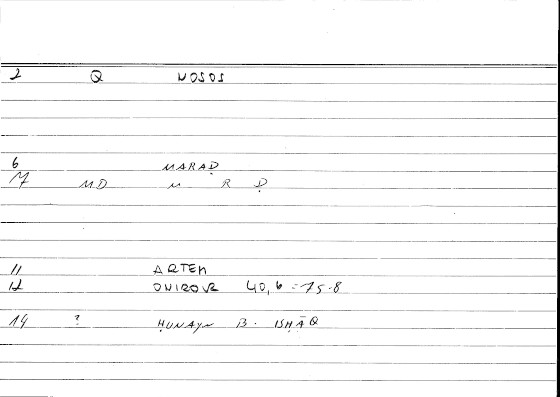 2 Q NOSOS
6 MARAḌ
M MD M R Ḍ
11 ARTEM
12 ONIROCR 40,6 = 75.8
14 ? ḤUNAYN B. ISḤĀQ